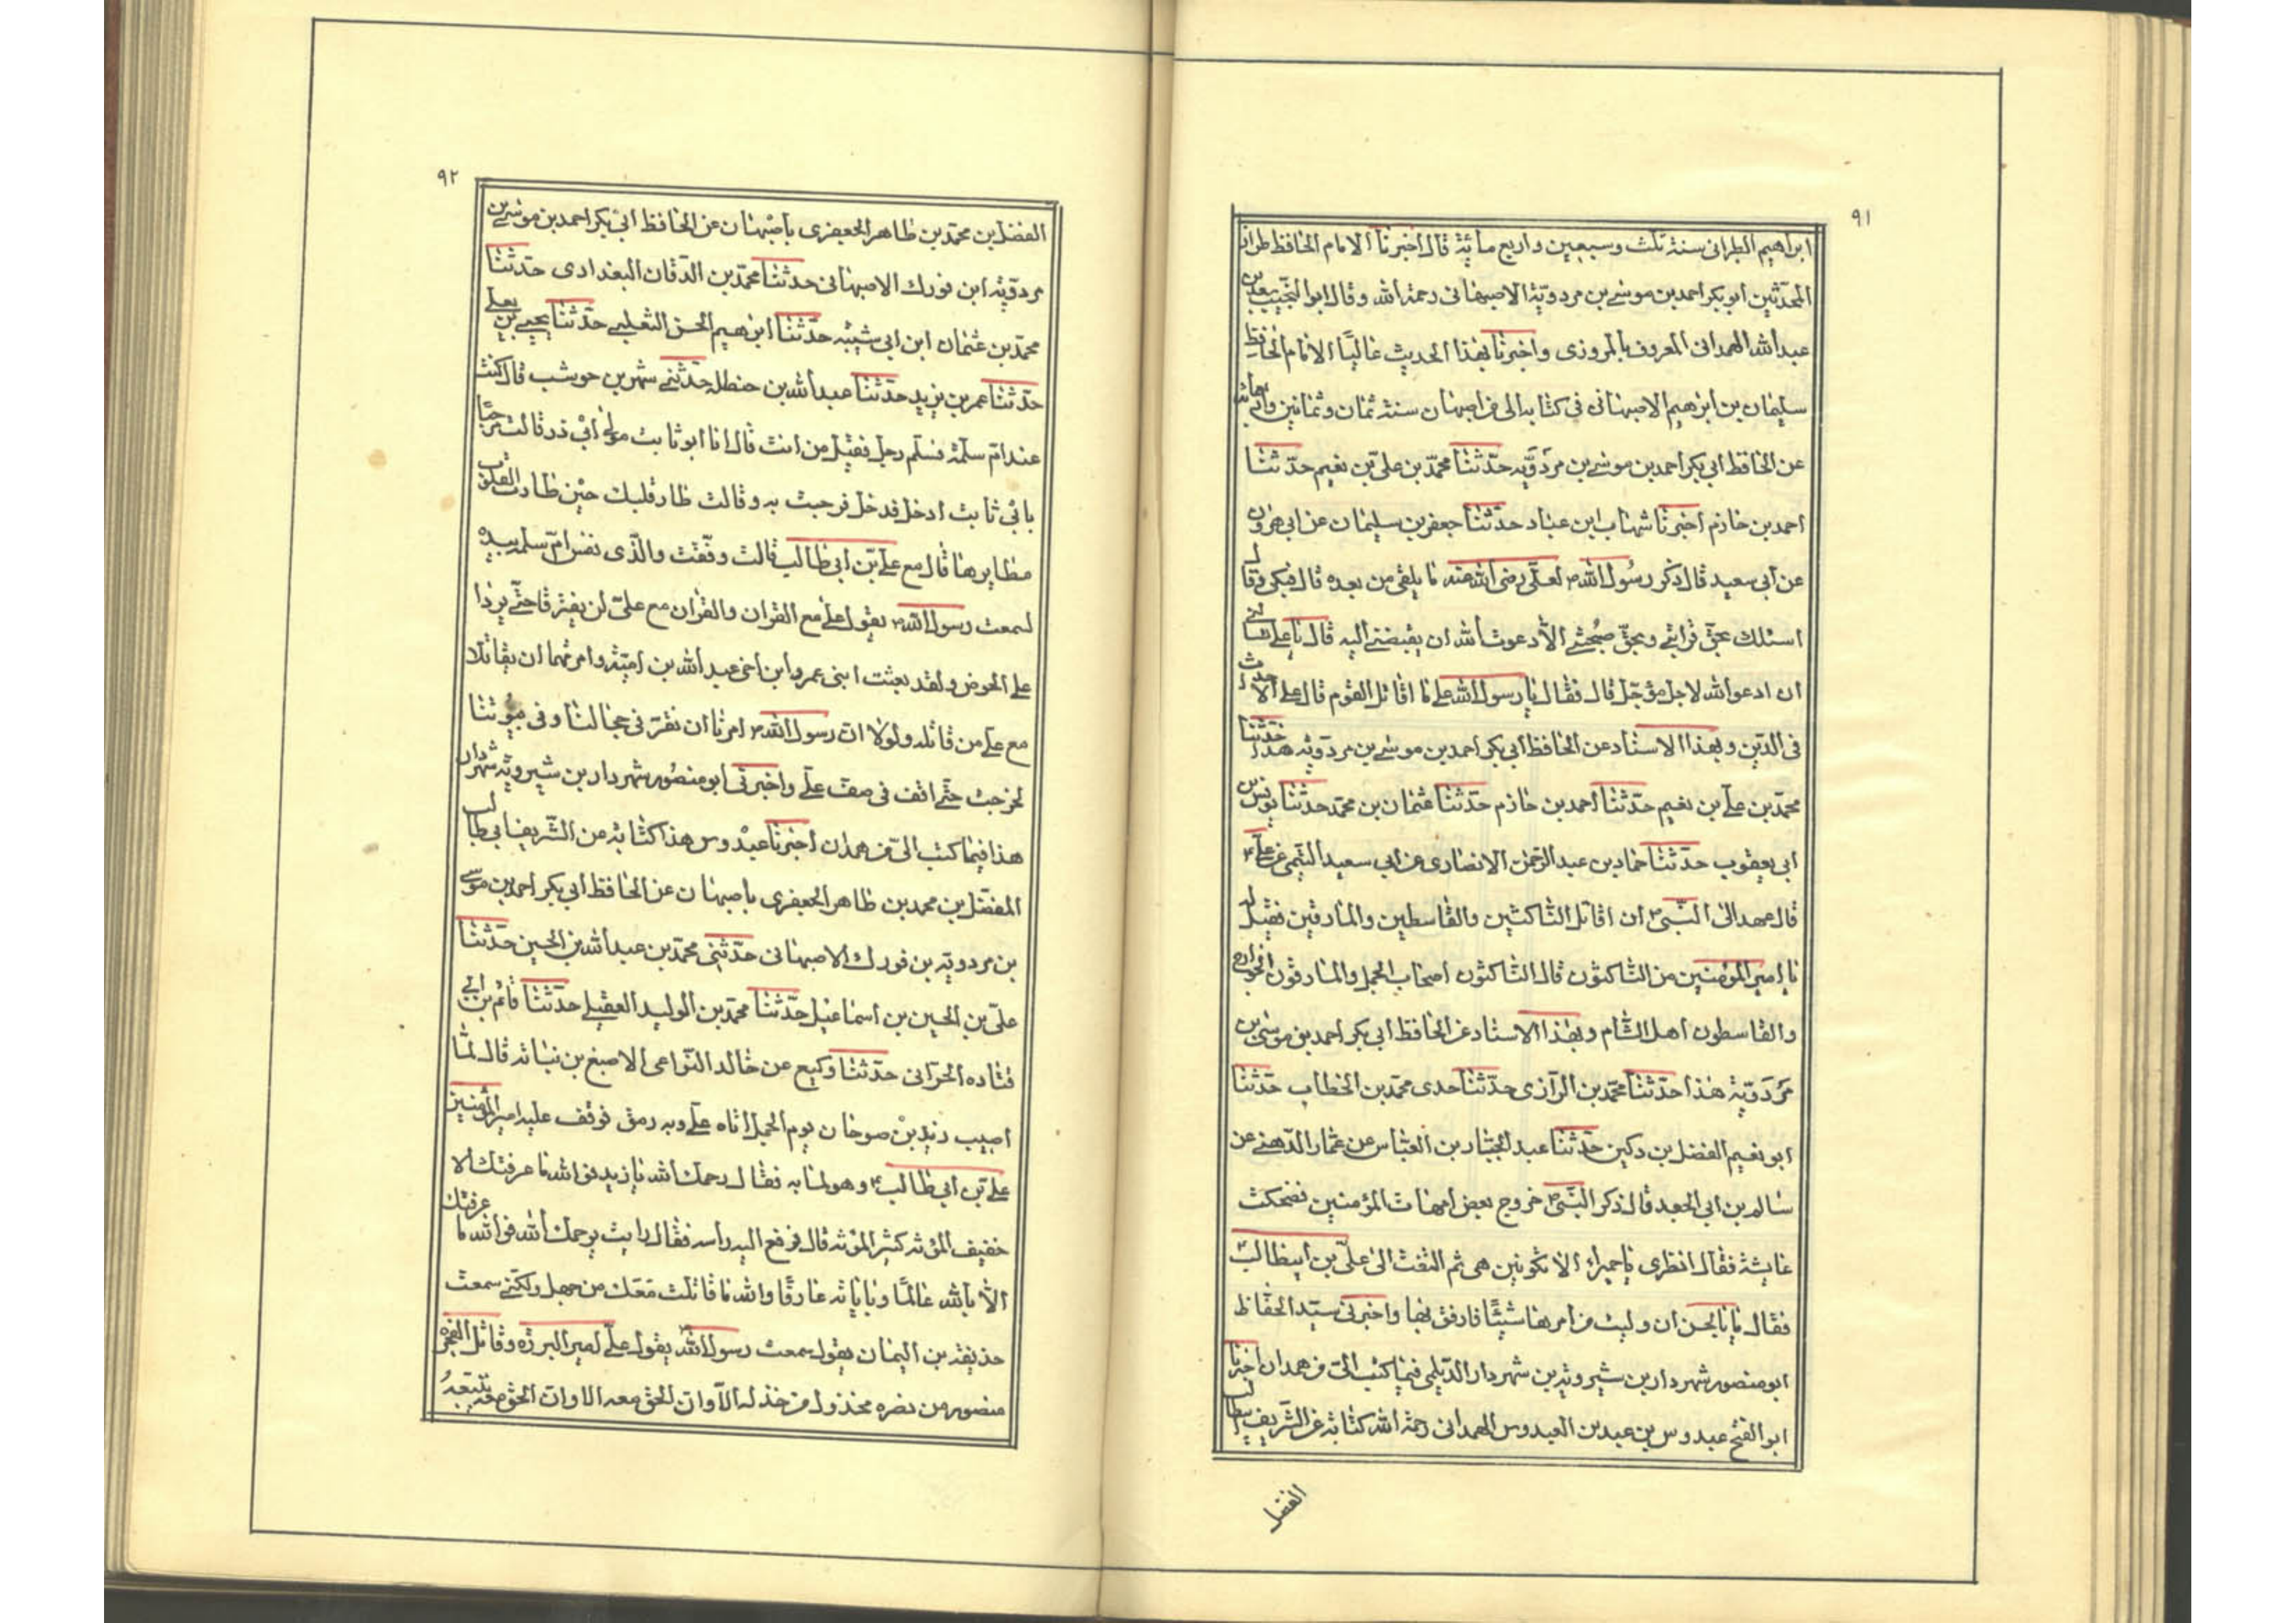 ٩١
ابراهيم الطبرانى سنة ثلث وسبعين واربع مائة قال اخبرنا الامام الحافظ طراز
المحدثين ابو بكر احمد بن موسى بن مردويه الاصبهانى رحمة الله وقال ابو النجيب سعد بن
عبد الله الهمدانى المعروف بالمروزى واخبرنا بهذا الحديث عاليًا الامام الحافظ
سليمان بن ابرهيم الاصبهانى فى كتابه الى من اصبهان سنة ثمان وثمانين واربعمائة
عن الحافظ ابى بكر احمد بن موسى بن مردويه حدثنا محمد بن على بن نعيم حدثنا
احمد بن حازم اخبرنا شهاب ابن عباد حدثنا جعفر بن سليمان عن ابى هرون
عن ابى سعيد قال ذكر رسول الله ص لعلى رضى الله عنه ما يلقى من بعده قال فبكى وقال
اسئلك بحق قرابتى وبحق صحبتى الا دعوت الله ان يقبضنى اليه قال يا على تسئلنى
ان ادعو الله لاجل مؤجل قال فقال يا رسول الله على ما اقاتل القوم قال على الاحداث
فى الدين وبهذا الاسناد عن الحافظ ابى بكر احمد بن موسى بن مردويه هذا حدثنا
محمد بن على بن نعيم حدثنا احمد بن حازم حدثنا عثمان بن محمد حدثنا يونس بن
ابى يعقوب حدثنا حماد بن عبد الرحمن الانصارى عن ابى سعيد التيمى عن على ع
قال عهد الى النبى ص ان اقاتل الناكثين والقاسطين والمارقين فقيل له
يا امير المؤمنين من الناكثون قال الناكثون اصحاب الجمل والمارقون الخوارج
والقاسطون اهل الشام وبهذا الاسناد عن الحافظ ابى بكر احمد بن موسى بن
مردويه هذا حدثنا محمد بن الرازى حدثنا حدى محمد بن الخطاب حدثنا
ابو نعيم الفضل بن دكين حدثنا عبد الجبار بن العباس عن عمار الدهنى عن
سالم بن ابى الجعد قال ذكر النبى ص خروج بعض امهات المؤمنين فضحكت
عايشة فقال انظرى يا حميراء الا تكونين هى ثم التفت الى على بن ابيطالب ع
فقال يا بالحسن ان وليت من امرها شيئًا فارفق بها واخبرنى سيد الحفاظ
ابو منصور شهردار بن شيرويه بن شهردار الديلمى فيما كتب الى من همدان اخبرنا
ابو الفتح عبدوس بن عبد بن العبدوس الهمدانى رحمة الله كتابة عن الشريف ابيطالب
الفضل
٩٢
الفضل بن محمد بن طاهر الجعفرى باصبهان عن الحافظ ابى بكر احمد بن موسى بن
مردويه ابن فورك الاصبهانى حدثنا محمد بن الدقان البغدادى حدثنا
محمد بن عثمان ابن ابى شيبه حدثنا ابرهيم الحسن الثعلبى حدثنا يحيى بن يعلى
حدثنا عمر بن يزيد حدثنا عبد الله بن حنطله حدثنى شهر بن حوشب قال كنت
عند ام سلمة فسلم رجل فقيل من انت قال انا ابو ثابت مولى ابى ذر قالت مرحبًا
بابى ثابت ادخل فدخل فرحبت به وقالت طار قلبك حين طارت القلوب
مطايرها قال مع على بن ابى طالب قالت وفقت والذى نفس ام سلمه بيده
لسمعت رسول الله ص يقول على مع القران والقران مع على لن يفترقا حتى يردا
على الحوض ولقد بعثت ابنى عمر وابن اخى عبد الله بن امية وامرتهما ان يقاتلا
مع على من قاتله ولولا ان رسول الله ص امرنا ان نقر فى حجالنا وفى بيوتنا
لخرجت حتى اقف فى صف على واخبرنى ابو منصور شهردار بن شيرويه شهردار
هذا فيما كتب الى من همدان اخبرنا عبدوس هذا كتابة من الشريف ابى طالب
المفضل بن محمد بن طاهر الجعفرى باصبهان عن الحافظ ابى بكر احمد بن موسى
بن مردويه بن فورك الاصبهانى حدثنى محمد بن عبد الله بن الحسين حدثنا
على بن الحسين بن اسماعيل حدثنا محمد بن الوليد العقيلى حدثنا قثم بن ابى
قتاده الحرانى حدثنا وكيع عن خالد النواعى الاصبغ بن نباته قال لما
اصيب زيد بن صوحان يوم الجمل اتاه على وبه رمق فوقف عليه امير المؤمنين
على بن ابى طالب ع وهو لما به فقال رحمك الله يا زيد فو الله ما عرفتك الا
خفيف المؤنه كثير المؤنه قال فرفع اليه راسه فقال وانت يرحمك الله فو الله ما عرفتك
الا بالله عالمًا وباياته عارفًا والله ما قاتلت معك من جهل ولكنى سمعت
حذيفه بن اليمان يقول سمعت رسول الله ص يقول على امير البرره وقاتل الفجره
منصور من نصره مخذول من خذله الا وان الحق معه الا وان الحق معه يتبعه